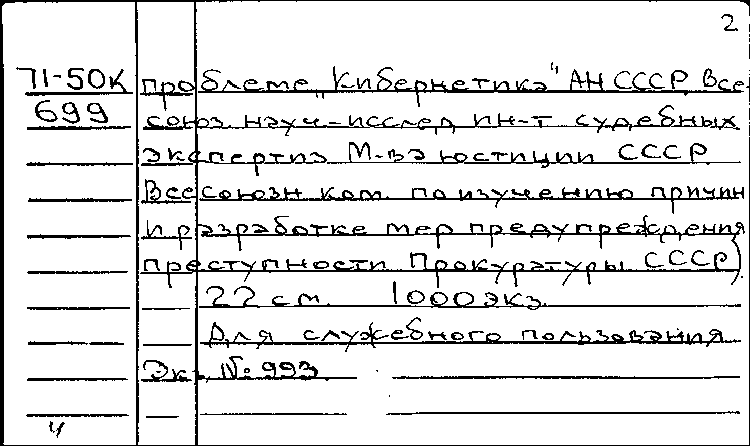 2
71-50к проблеме „Кибернетика" АН СССР. Все-
699 союз. науч-исслед. ин-т судебных
экспертиз М-ва юстиции СССР.
Всесоюзн. ком. по изучению причин
и разработке мер предупреждения
преступности Прокуратуры СССР).
22 см. 1000 экз.
Для служебного пользования
Экз. № 993.
ч